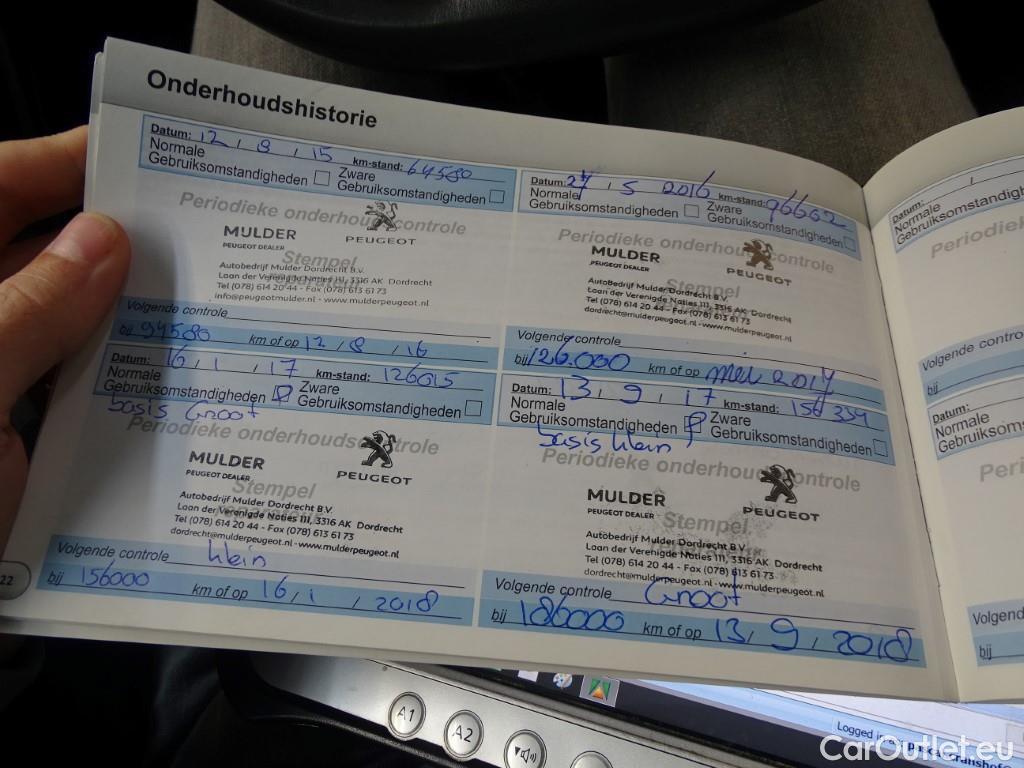 Onderhoudshistorie
Datum: 12 / 8 / 15 km-stand: 64580
Normale Gebruiksomstandigheden Zware Gebruiksomstandigheden
Periodieke onderhoudscontrole
MULDER
PEUGEOT DEALER
PEUGEOT
Stempel
Autobedrijf Mulder Dordrecht B.V.
Laan der Verenigde Naties 111, 3316 AK Dordrecht
Tel (078) 614 20 44 - Fax (078) 613 61 73
info@peugeotmulder.nl - www.mulderpeugeot.nl
Volgende controle
bij 94580 km of op 12 / 8 / 16
Datum: 27 / 5 2016 km-stand: 96602
Normale Gebruiksomstandigheden Zware Gebruiksomstandigheden
Periodieke onderhoudscontrole
MULDER
PEUGEOT DEALER
PEUGEOT
Stempel
Autobedrijf Mulder Dordrecht B.V.
Laan der Verenigde Naties 111, 3316 AK Dordrecht
Tel (078) 614 20 44 - Fax (078) 613 61 73
dordrecht@mulderpeugeot.nl - www.mulderpeugeot.nl
Volgende controle
bij 126.000 km of op mei 2017
Datum: 16 / 1 / 17 km-stand: 126015
Normale Gebruiksomstandigheden Zware Gebruiksomstandigheden
basis Groot
Periodieke onderhoudscontrole
MULDER
PEUGEOT DEALER
PEUGEOT
Stempel
Autobedrijf Mulder Dordrecht B.V.
Laan der Verenigde Naties 111, 3316 AK Dordrecht
Tel (078) 614 20 44 - Fax (078) 613 61 73
dordrecht@mulderpeugeot.nl - www.mulderpeugeot.nl
Volgende controle klein
bij 156000 km of op 16 / 1 / 2018
Datum: 13 / 9 / 17 km-stand: 156339
Normale Gebruiksomstandigheden Zware Gebruiksomstandigheden
basis klein
Periodieke onderhoudscontrole
MULDER
PEUGEOT DEALER
PEUGEOT
Stempel
Autobedrijf Mulder Dordrecht B.V.
Laan der Verenigde Naties 111, 3316 AK Dordrecht
Tel (078) 614 20 44 - Fax (078) 613 61 73
dordrecht@mulderpeugeot.nl - www.mulderpeugeot.nl
Volgende controle Groot
bij 186000 km of op 13 / 9 / 2018
22
Datum:
Normale
Gebruiksomstandig
Periodie
Volgende contro
bij
Datum:
Normale
Gebruiksoms
Peri
Volgend
bij
A1
A2
Logged in
CarOutlet.eu